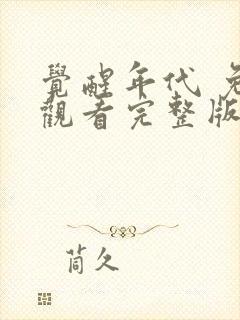 覺醒年代 免
觀看完整版
茼久